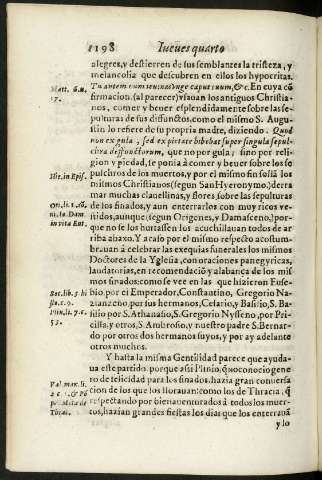 1198
Iueues quarto
alegres, y destierren de sus semblantes la tristeza, y
melancolia que descubren en ellos los hypocritas.
Matt. 6. n.
17.
Tu autem cum ieiunas vnge caput tuum, &c. En cuya cō
firmacion (al parecer) vsauan los antiguos Christia-
nos, comer y beuer esplendidamente sobre las se-
pulturas de sus diffunctos, como el mismo S. Augu-
stin lo refiere de su propria madre, diziendo. Quod
non ex gula, sed ex pietate bibebat super singula sepul-
cra deffunctorum, que no por gula; sino por reli-
gion y piedad, se ponia à comer y beuer sobre los se
Hie. in Epis.
pulchros de los muertos, y por el mismo fin solía los
mismos Christianos (segun San Hyeronymo) derra
mar muchas clauellinas, y flores sobre las sepulturas
de los finados, y aun enterrarlos con muy ricos ve-
stidos, aunque (segun Origenes, y Damasceno) por-
que no se los hurtassen los acuchillauan todos de ar
riba abaxo. Y acaso por el mismo respecto acostum-
brauan à celebrar las exequias funerales los mismos
Doctores de la Yglesia, con oraciones panegyricas,
laudatorias, en recomendació y alabança de los mis
mos finados: como se vee en las que hizieron Euse-
bio, por el Emperador, Constantino, Gregorio Na-
zianzeno por sus hermanos, Cesario, y Basilio, S. Ba-
silio por S. Athanasio, S. Gregorio Nysseno, por Pri-
scilla, y otros, S. Ambrosio, y nuestro padre S. Bernar-
do por otros dos hermanos suyos, y por ay adelante
otros muchos.
Y hasta la misma Gentilidad parece que ayuda-
ua este partido, porque assi Plinio, q̃ no conocio gene
ro de felicidad para los finados, hazia gran conuersa
cion de los que los llorauan: como los de Thracia, q̃
respectando por bienauenturados à todos los muer-
tos, hazian grandes fiestas los dias que los enterrauã
y lo